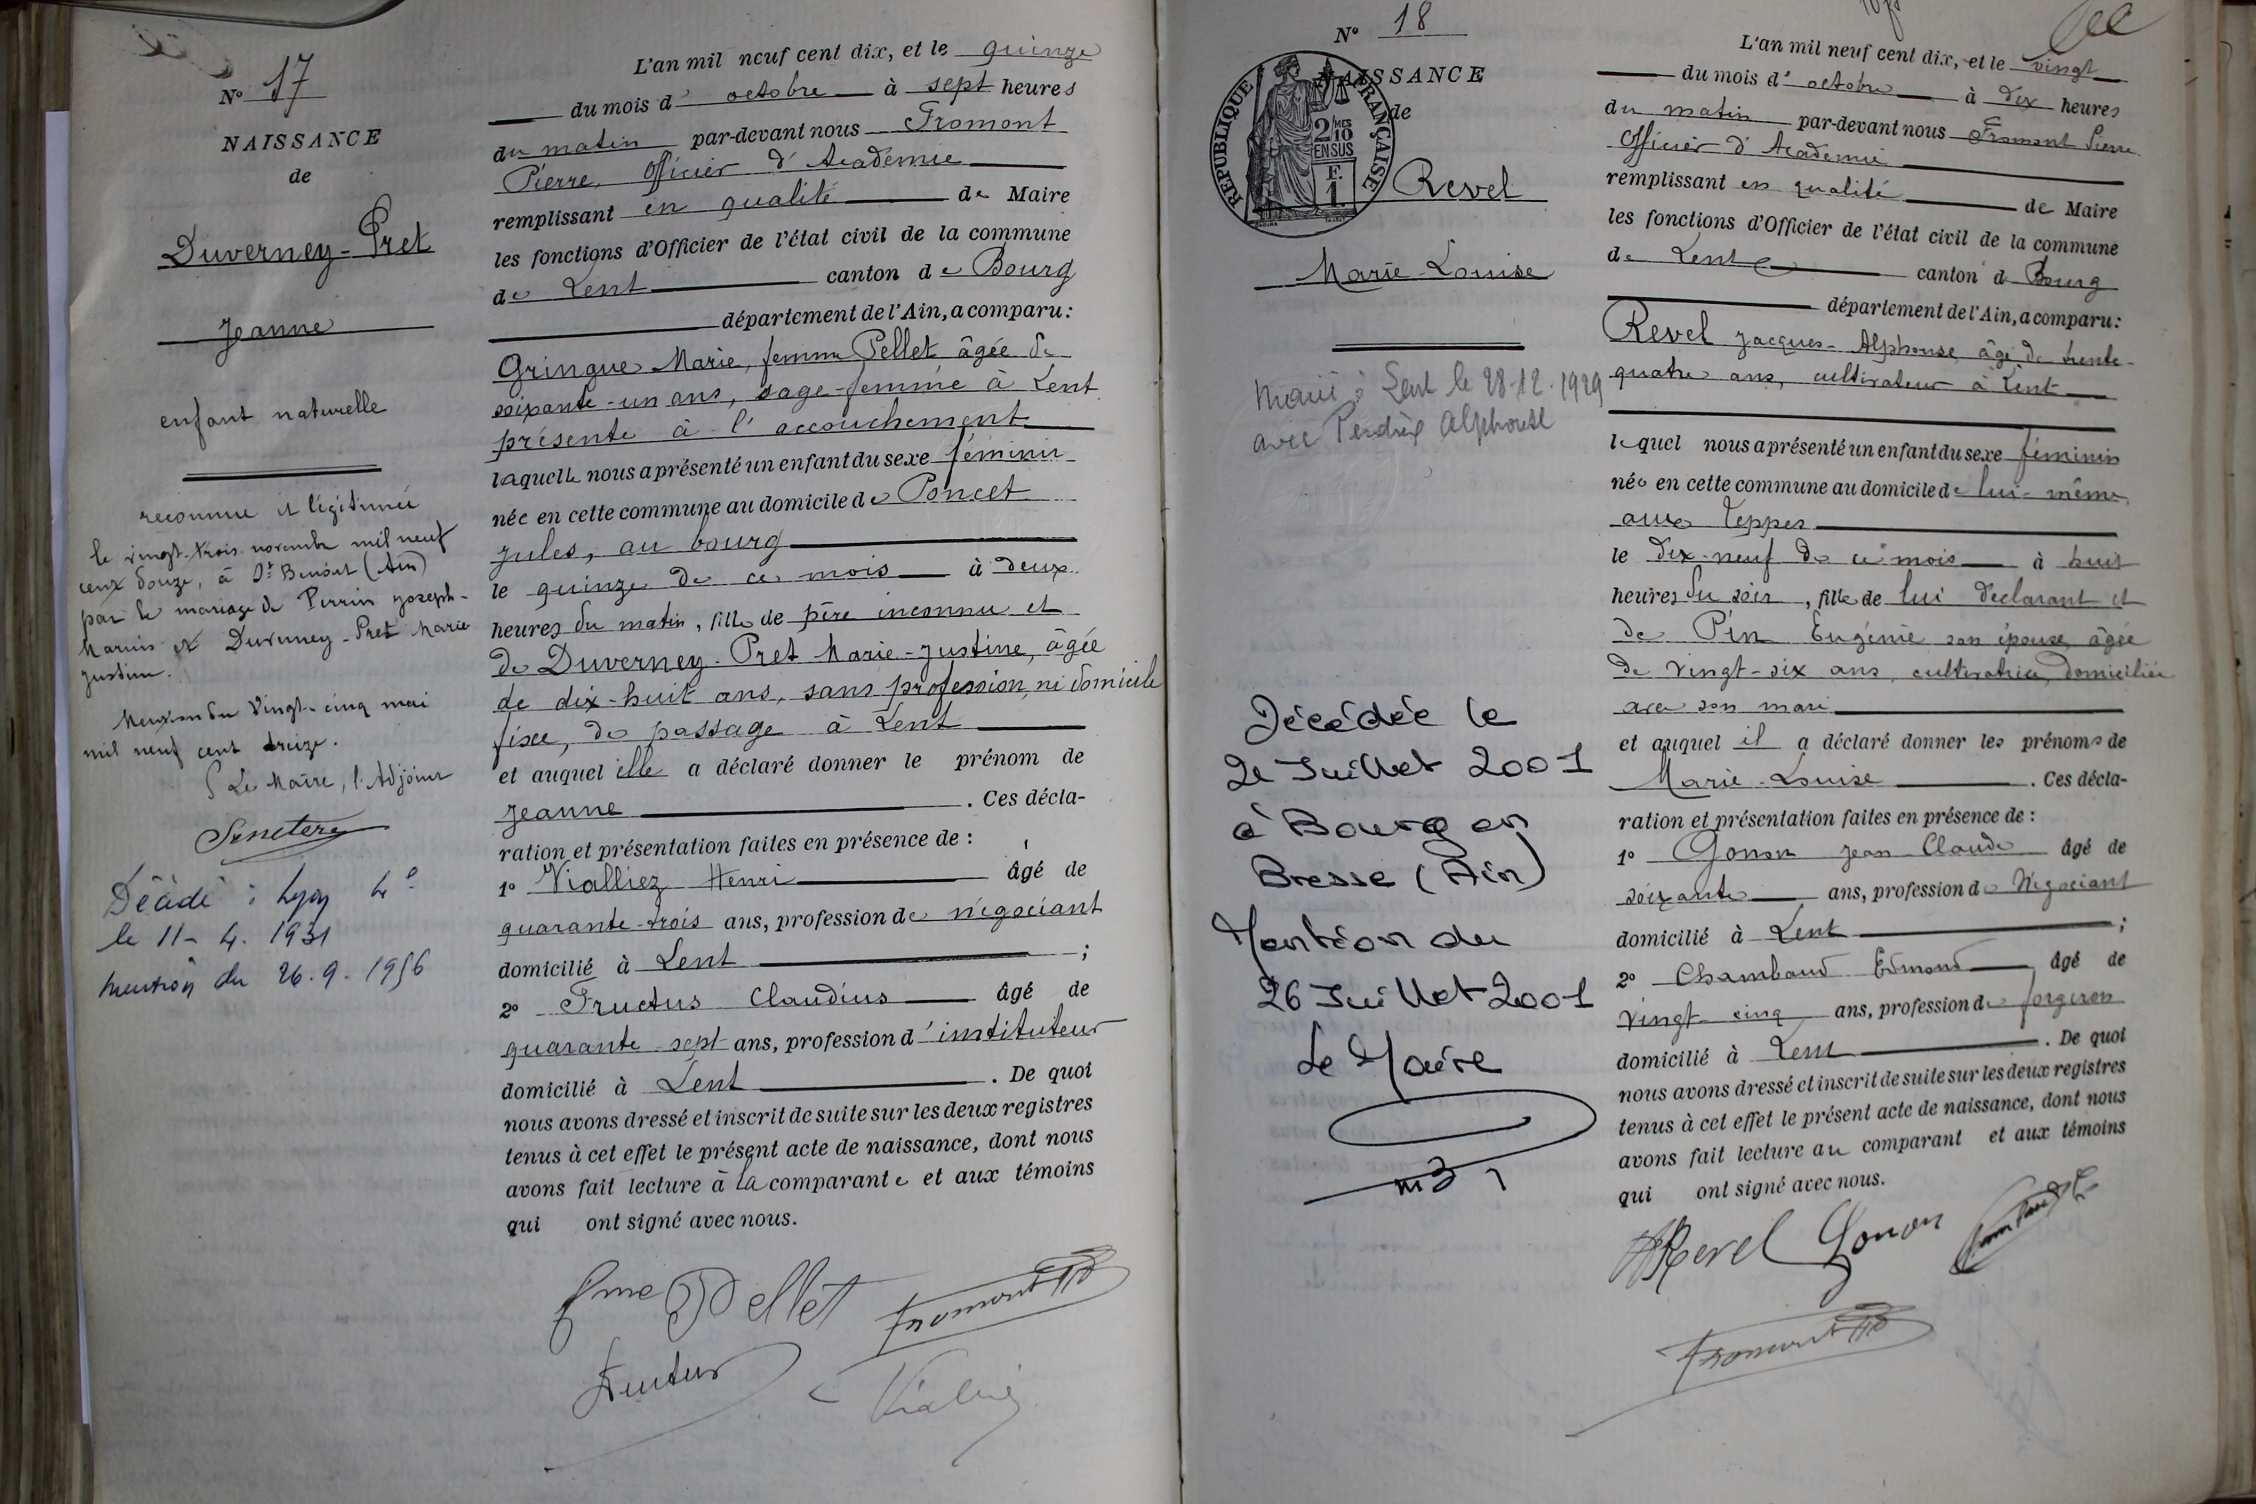 N° 17
NAISSANCE
de
Duverney-Pret
Jeanne
enfant naturelle
reconnue et légitimée
le vingt-trois novembre mil neuf
cent douze, à St Benoit (Ain)
par le mariage de Perrin Joseph-
Marius et Duverney-Pret Marie
Justine.
Mention du vingt-cinq mai
mil neuf cent treize.
Le Maire, l'Adjoint
Décédé : Lyon 4e
le 11-4.1931
mention du 26.9.1956
L'an mil neuf cent dix, et le quinze
du mois d' octobre à sept heures
du matin par-devant nous Fromont
Pierre, Officier d'Académie
remplissant en qualité de Maire
les fonctions d'Officier de l'état civil de la commune
de Lent canton de Bourg
département de l'Ain, a comparu :
Gringue Marie, femme Pellet âgée de
soixante-un ans, sage-femme à Lent
présente à l'accouchement
laquelle nous a présenté un enfant du sexe féminin
née en cette commune au domicile de Poncet
Jules, au bourg
le quinze de ce mois à deux
heures du matin, fille de père inconnu et
de Duverney-Pret Marie-Justine, âgée
de dix-huit ans, sans profession, ni domicile
fixe, de passage à Lent
et auquel elle a déclaré donner le prénom de
Jeanne . Ces décla-
ration et présentation faites en présence de :
1° Vialliez Henri âgé de
quarante-trois ans, profession de négociant
domicilié à Lent ;
2° Fructus Claudius âgé de
quarante-sept ans, profession d'instituteur
domicilié à Lent . De quoi
nous avons dressé et inscrit de suite sur les deux registres
tenus à cet effet le présent acte de naissance, dont nous
avons fait lecture à la comparante et aux témoins
qui ont signé avec nous.
fme Pellet Fromont
Fructus
N° 18
NAISSANCE
de
REPUBLIQUE FRANÇAISE
2/10 MES
EN SUS
F.
1.
Revel
Marie-Louise
Marié à Lent le 28.12.1929
avec Perdrix Alphonse
Décédée le
21 Juillet 2001
à Bourg en
Bresse (Ain)
Mention du
26 Juillet 2001
Le Maire
L'an mil neuf cent dix, et le vingt
du mois d' octobre à dix heures
du matin par-devant nous Fromont Pierre
Officier d'Académie
remplissant en qualité de Maire
les fonctions d'Officier de l'état civil de la commune
de Lent canton d Bourg
département de l'Ain, a comparu :
Revel Jacques-Alphonse âgé de trente-
quatre ans, cultivateur à Lent
lequel nous a présenté un enfant du sexe féminin
née en cette commune au domicile de lui-même
aux Teppes
le dix-neuf de ce mois à huit
heures du soir, fille de lui déclarant et
de Pin Eugénie son épouse, âgée
de vingt-six ans, cultivatrice, domiciliée
avec son mari
et auquel il a déclaré donner les prénoms de
Marie-Louise . Ces décla-
ration et présentation faites en présence de :
1° Gonon Jean Claude âgé de
soixante ans, profession de Négociant
domicilié à Lent ;
2° Chambaud Edmond âgé de
vingt-cinq ans, profession de forgeron
domicilié à Lent . De quoi
nous avons dressé et inscrit de suite sur les deux registres
tenus à cet effet le présent acte de naissance, dont nous
avons fait lecture au comparant et aux témoins
qui ont signé avec nous.
Revel Gonon
Fromont